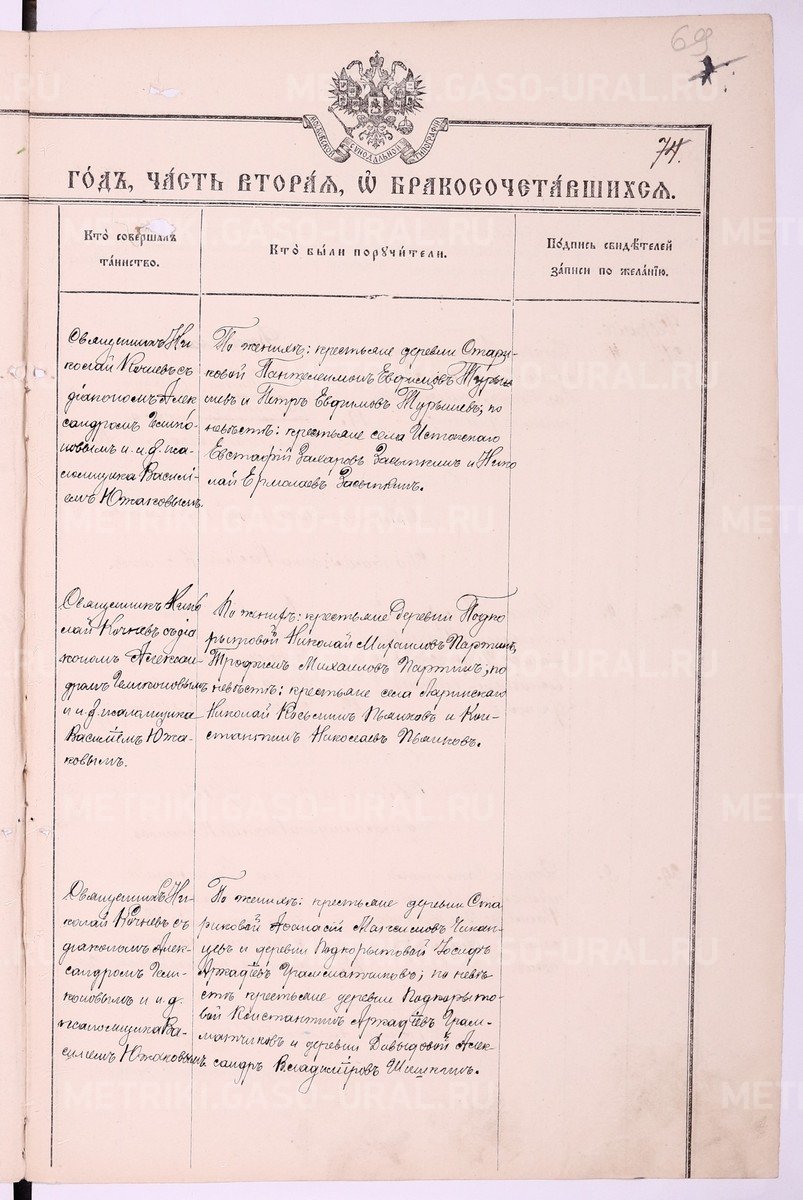 69
74.
МОСКОВСКОЙ СѴНОДАЛЬНОЙ ТИПОГРАФІИ
ГО́ДЪ, ЧА́СТЬ ВТОРА́Я, Ѡ БРАКОСОЧЕТА́ВШИХСЯ.
Кто̀ совершалъ
та́инство.
Кто̀ бы́ли пору́чители.
По́дпись свидѣ́телей
за́писи по жела́нію.
Священникъ Ни-
колай Кочневъ съ
діакономъ Алек-
сандромъ
и и. д. пса-
ломщика Василі-
емъ Южаковымъ.
По женихѣ: крестьяне деревни Стари-
ковой Пантелеимонъ Евфимовъ Турыг-
шевъ и Петръ Евфимовъ Турышевъ; по
невѣстѣ: крестьяне села Истокскаго
Евстафій Захаровъ Засыпкинъ и Нико-
лай Ермолаевъ Засыпкинъ.
Священникъ Нико-
лай Кочневъ съ діа-
кономъ Алексан-
дромъ
и и. д. псаломщика
Василіемъ Южа-
ковымъ.
По женихѣ: крестьяне деревни Подко-
рытовой Николай Михайловъ Партинъ,
Трофимъ Михаиловъ Партинъ; по
невѣстѣ: крестьяне села Ларинскаго
Николай Косьминъ Пьянковъ и Кон-
стантинъ Николаевъ Пьянковъ.
Священникъ Ни-
колай Кочневъ съ
діакономъ Алек-
сандромъ
и и. д.
псаломщика Ва-
силіемъ Южаковымъ.
По женихѣ: крестьяне деревни Ста-
риковой Аѳанасій Максимовъ
и деревни Подкорытовой Іосифъ
Аркадіевъ Грамматчиковъ; по невѣ-
стѣ крестьяне деревни Подкорыто-
вой Константинъ Аркадіевъ Грам-
матчиковъ и деревни Давыдовой Алек-
сандръ Владиміровъ Шешкинъ.
METRIKI.GASO-URAL.RU